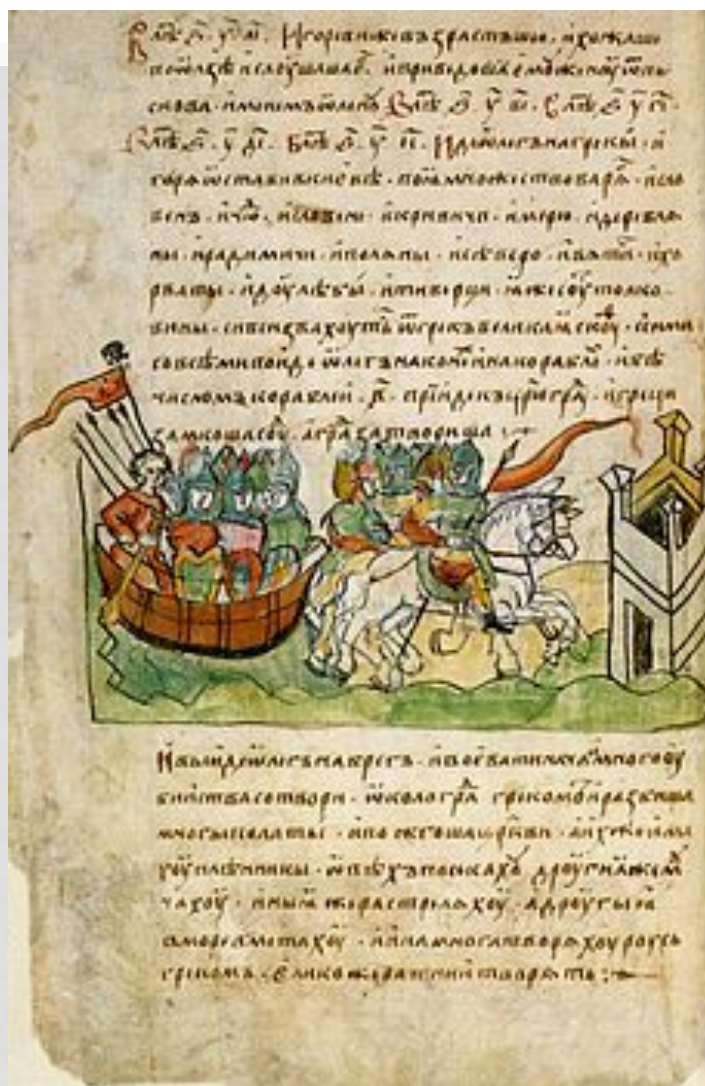 В лѣⷮ ҂ѕ҃ у҃ аі. Игореви же възрастъшю. и хожаше
по ѡлзѣ и слоушаше еⷢ. и приведоша емоу женоу ѿ пь
скова. именемъ ѡленоу В лѣⷮ ѕ҃ у҃ ві. В лѣⷮ ѕ҃ у҃ гі.
В лѣⷮ ѕ҃ у҃ ді. В лѣⷮ ѕ҃ у҃ еі. Иде ѡлегъ на грекы. и
горѧ ѡстави в киевѣ. поѧ множество варѧⷢ. и сло
венъ. и чюⷣ. и словени. и кривичи. и мерю. и деревлѧ
ны. и радимичи. и полѧны. и северо. и вѧтиⷱ. и хо
рваты. и доулѣбы. и тиверци. ꙗже соуⷮ толко
вины. си вси звахоутⷭь ѿ грекъ великаѧ скоуⷴ. с сими
со всѣми поиде ѡлегъ на конеⷯ и на кораблеⷯ. и бѣ
числомъ кораблеи. в҃. прииде къ црⷭюграⷣ. и греци
замкоша соуⷣ. а граⷣ затвориша
И выиде ѡлегъ на брегъ. и воевати нача. и много оу
биства сотвори. ѡколо граⷣ грекомъ. и разбиша
многы полаты. и пожегоша црⷪкви. а иⷯ же има
хоу плѣнникы. ѡвѣхъ посѣкахоу дроугиа же моу
чахоу. иныа же растрелѧхоу. а дроугыа
в море вметахоу. и ина многа творѧхоу роусь
грекомъ. елико же ратнии творѧть